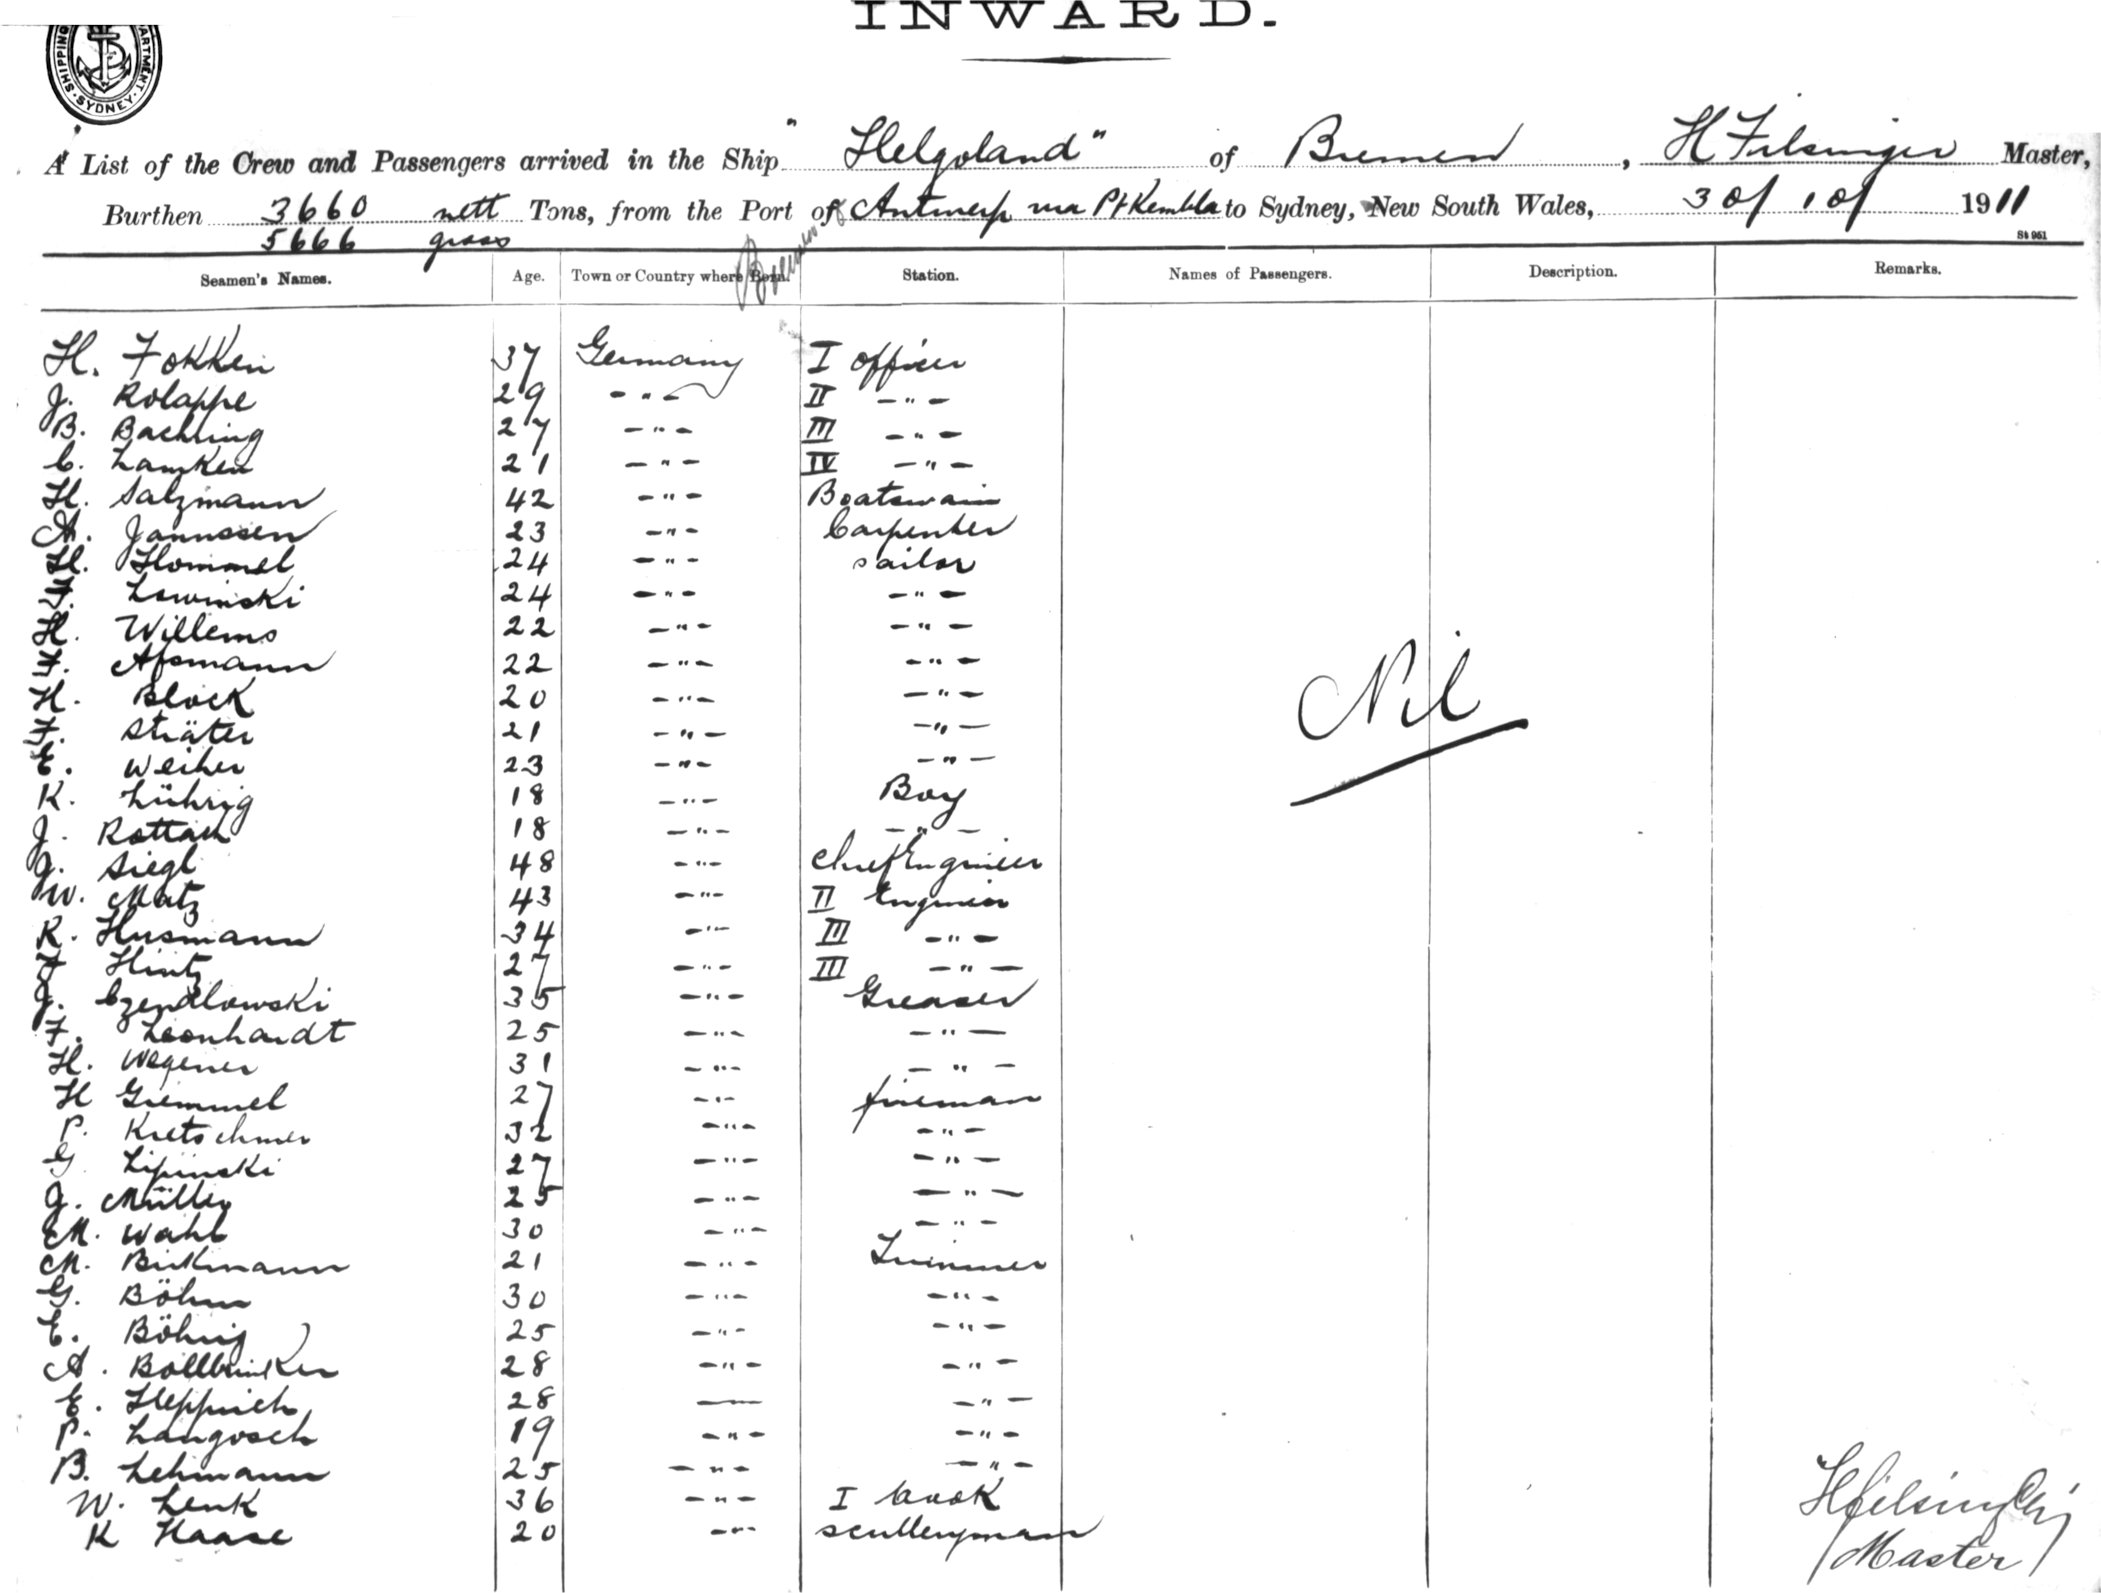 INWARD.
SHIPPING DEPARTMENT SYDNEY
A List of the Crew and Passengers arrived in the Ship "Helgoland" of Bremen, H Filsinger Master,
Burthen 3660 nett Tons, from the Port of Antwerp via Pt Kembla to Sydney, New South Wales, 30/10/1911
5666 gross
St 951
Seamen's Names. Age. Town or Country where Born. Station. Names of Passengers. Description. Remarks.
H. Fokken 37 Germany I officer
J. Rolappe 29 -"- II -"-
B. Baehring 27 -"- III -"-
C. Lamken 21 -"- IV -"-
H. Salzmann 42 -"- Boatswain
A. Janussen 23 -"- Carpenter
H. Hommel 24 -"- sailor
F. Lowinski 24 -"- -"-
H. Willems 22 -"- -"-
F. Assmann 22 -"- -"-
H. Block 20 -"- -"-
F. Sträter 21 -"- -"-
E. Weiher 23 -"- -"-
K. Lührig 18 -"- Boy
J. Rottach 18 -"- -"-
J. Siegl 48 -"- Chief Engineer
W. Matz 43 -"- II Engineer
R. Husmann 34 -"- III -"-
F Hintz 27 -"- III -"-
J. Czendlowski 35 -"- Greaser
F. Leonhardt 25 -"- -"-
H. Wegener 31 -"- -"-
H Gremmel 27 -"- fireman
P. Kretschmer 32 -"- -"-
G Lipinski 27 -"- -"-
J. Müller 25 -"- -"-
M. Wahl 30 -"- -"-
M. Birkmann 21 -"- Trimmer
G. Böhm 30 -"- -"-
E. Böhrig 25 -"- -"-
A. Bollbrinker 28 -"- -"-
E. Hepprich 28 -"- -"-
P. Langosch 19 -"- -"-
B. Lehmann 25 -"- -"-
W. Lenk 36 -"- I Cook
K Haase 20 -"- sculleryman
Nil
H Filsinger
Master